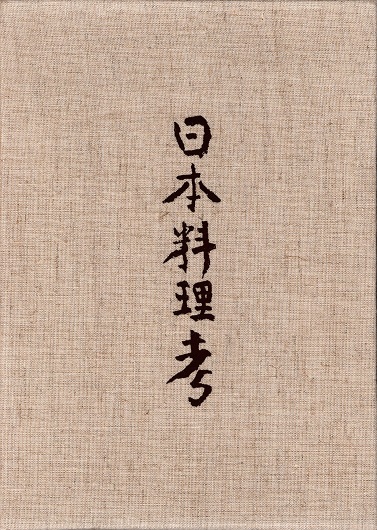 日本料理考